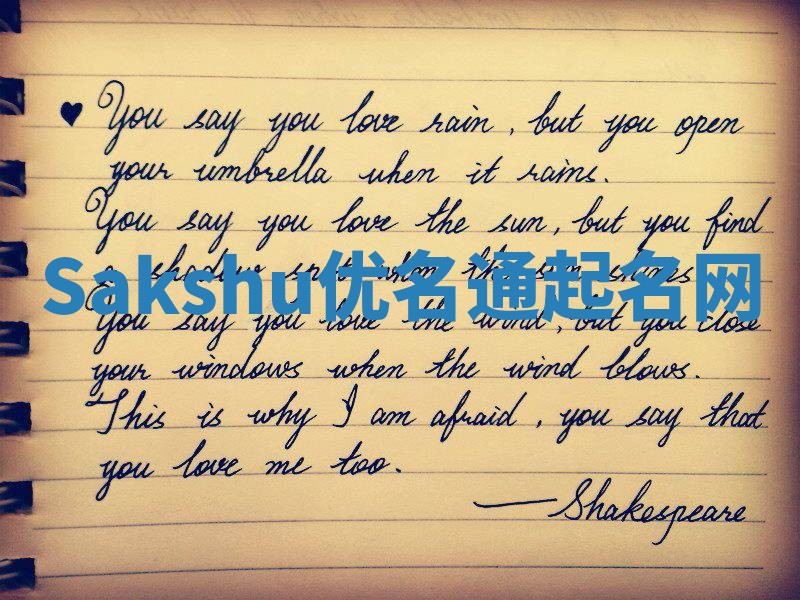 ♥ You say you love rain, but you open
your umbrella when it rains.
You say you love the sun, but you find
a shadow spot when the sun shines
Sakshu优名通起名网
You say you love the wind, but you close
your windows when the wind blows.
This is why I am afraid, you say that
you love me too.
—Shakespeare